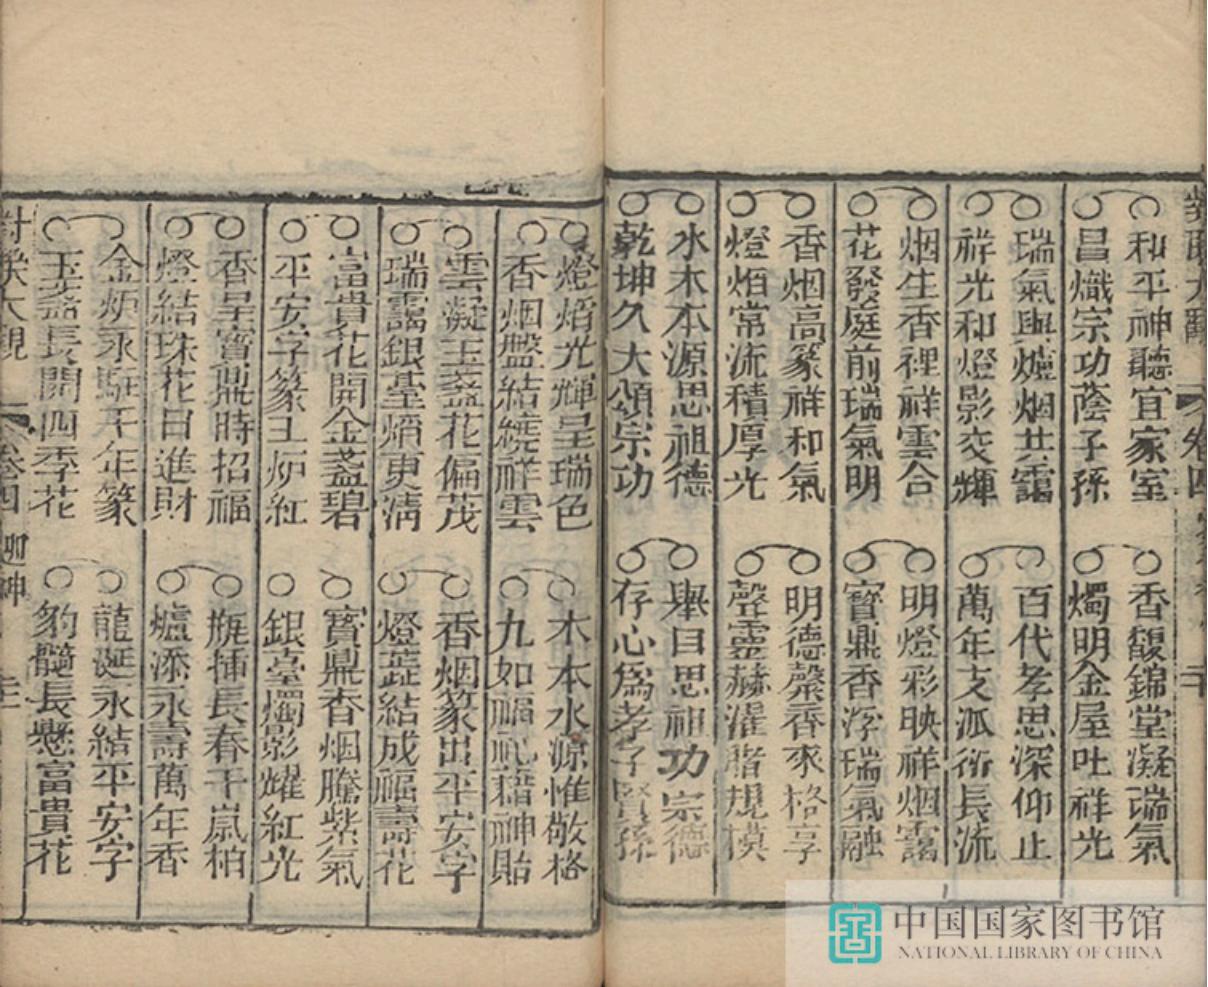 和平神聽宜家室
昌熾宗功蔭子孫
香馥錦堂凝瑞氣
燭明金屋吐祥光
瑞氣與爐烟共靄
祥光和燈影交輝
百代孝思深仰止
萬年支派衍長流
烟生香裡祥雲合
花發庭前瑞氣明
明燈彩映祥烟靄
寶鼎香浮瑞氣融
香烟高篆祥和氣
燈焰常流積厚光
明德馨香來格享
聲靈赫濯規模
水木本源思祖德
乾坤久大頌宗功
舉目思祖功宗德
存心爲孝子賢孫
燈焰光輝呈瑞色
香烟盤結繞祥雲
木本水源惟敬格
九如福祉藉神貽
雲凝玉盞花偏茂
瑞靄銀臺焰更清
香烟篆出平安字
燈蕋結成福壽花
富貴花開金盞碧
平安字篆玉炉紅
寶鼎香烟騰紫氣
銀臺燭影耀紅光
香呈寶鼎時招福
燈結珠花日進財
瓶插長春千嵗柏
爐添永壽萬年香
金炉永駐千年篆
玉盞長開四季花
龍涎永結平安字
豹髓長懸富貴花
大觀 卷四 迎神
中国国家图书馆
NATIONAL LIBRARY OF CHINA